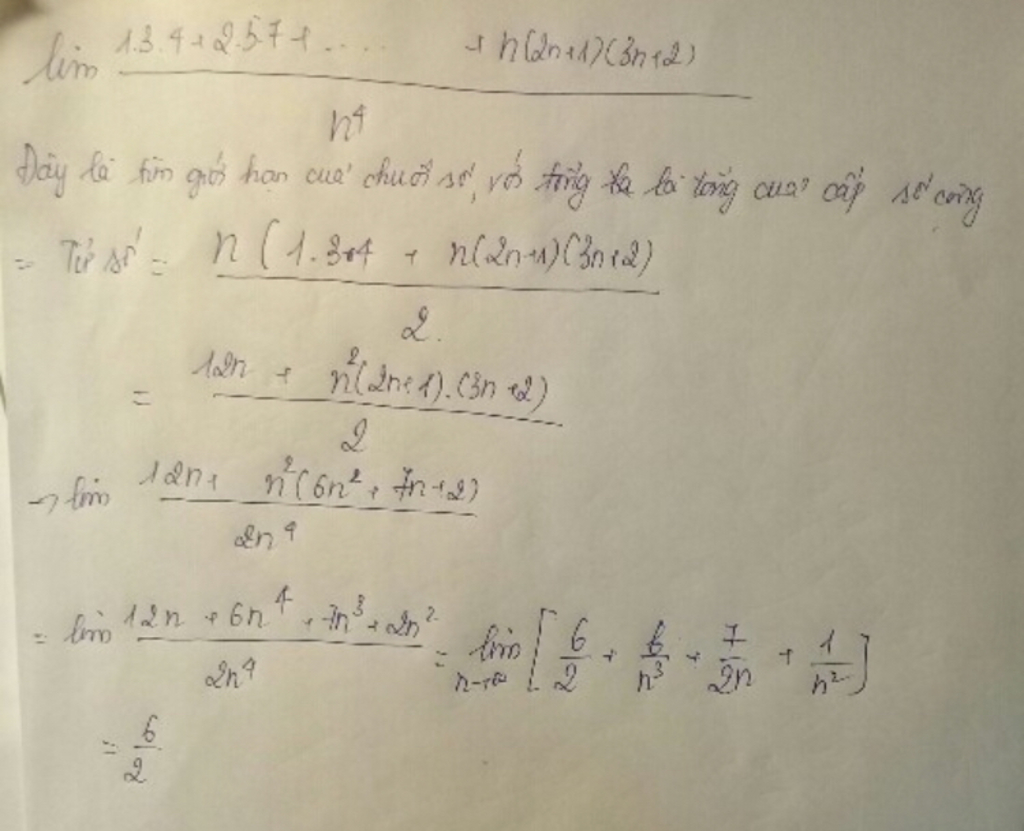 lim (1.3.4 + 2.5.7 + .... + n(2n+1)(3n+2)) / n⁴
Đây là tìm giới hạn của chuỗi số, với tổng là tổng của cấp số cộng
= Tử số = n(1.3.4 + n(2n+1)(3n+2)) / 2.
= (12n + n²(2n+1).(3n+2)) / 2
→ lim (12n + n²(6n² + 7n+2)) / 2n⁴
= lim (12n + 6n⁴ + 7n³ + 2n²) / 2n⁴ = lim n→∞ [6/2 + 6/n³ + 7/2n + 1/n²]
= 6/2